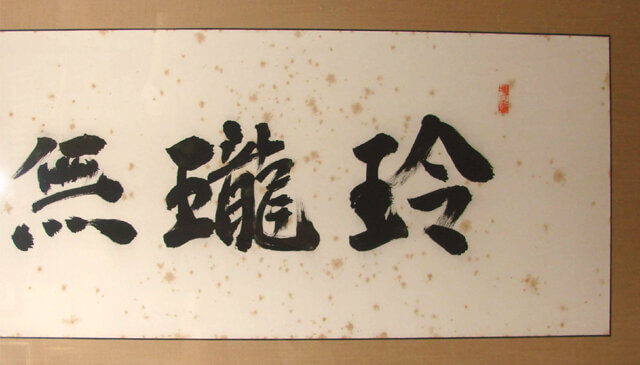 玲瓏無